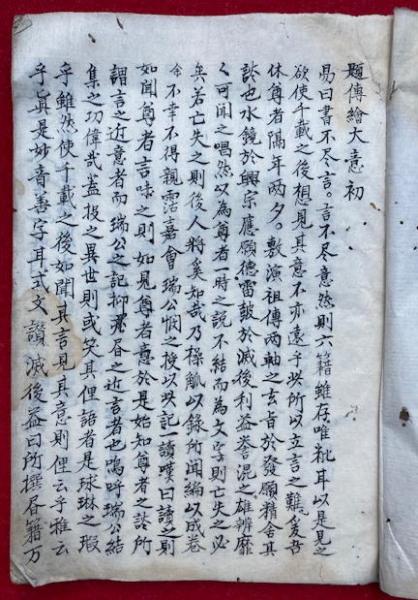 題傳繪大意初
易曰書不盡言言不盡意然則六籍雖存唯糀耳以是見之
欲使千載之後想見其意不亦遠乎此所以立言之難爰吾
休尊者隔年両夕敷演祖傳両軸之玄旨於發願精舍其
談也水鏡於興宗應願德雷誤於滅後利益誉混之雄辨靡
〻可聞之唱然以為尊者一時之説不結而為文字則亡失之必
矣若亡失之則後人將奚知哉乃操觚以錄所聞編以成卷
余不幸不得親霑嘉會瑞公憫之授以此記一讀嘆曰讀之則
如聞尊者言味之則如見尊者意於是始知尊者之談所
謂言之近意者而瑞公之記抑爲之近言者也嗚呼瑞公結
集之功偉哉蓋投之異世則或笑其俚語者是球琳之瑕
乎雖然使千載之後如聞其言見其意則俚云乎雅云
乎眞是妙音善字耳式文讚滅後益曰所撰眉籍万